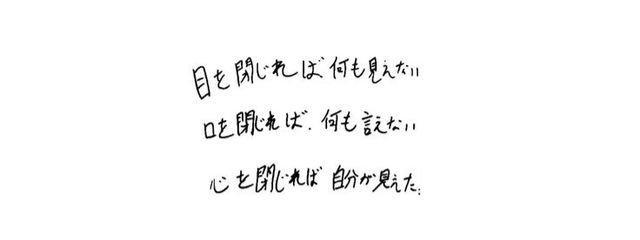 目を閉じれば 何も見えない
口を閉じれば、何も言えない
心を閉じれば 自分が見えた。